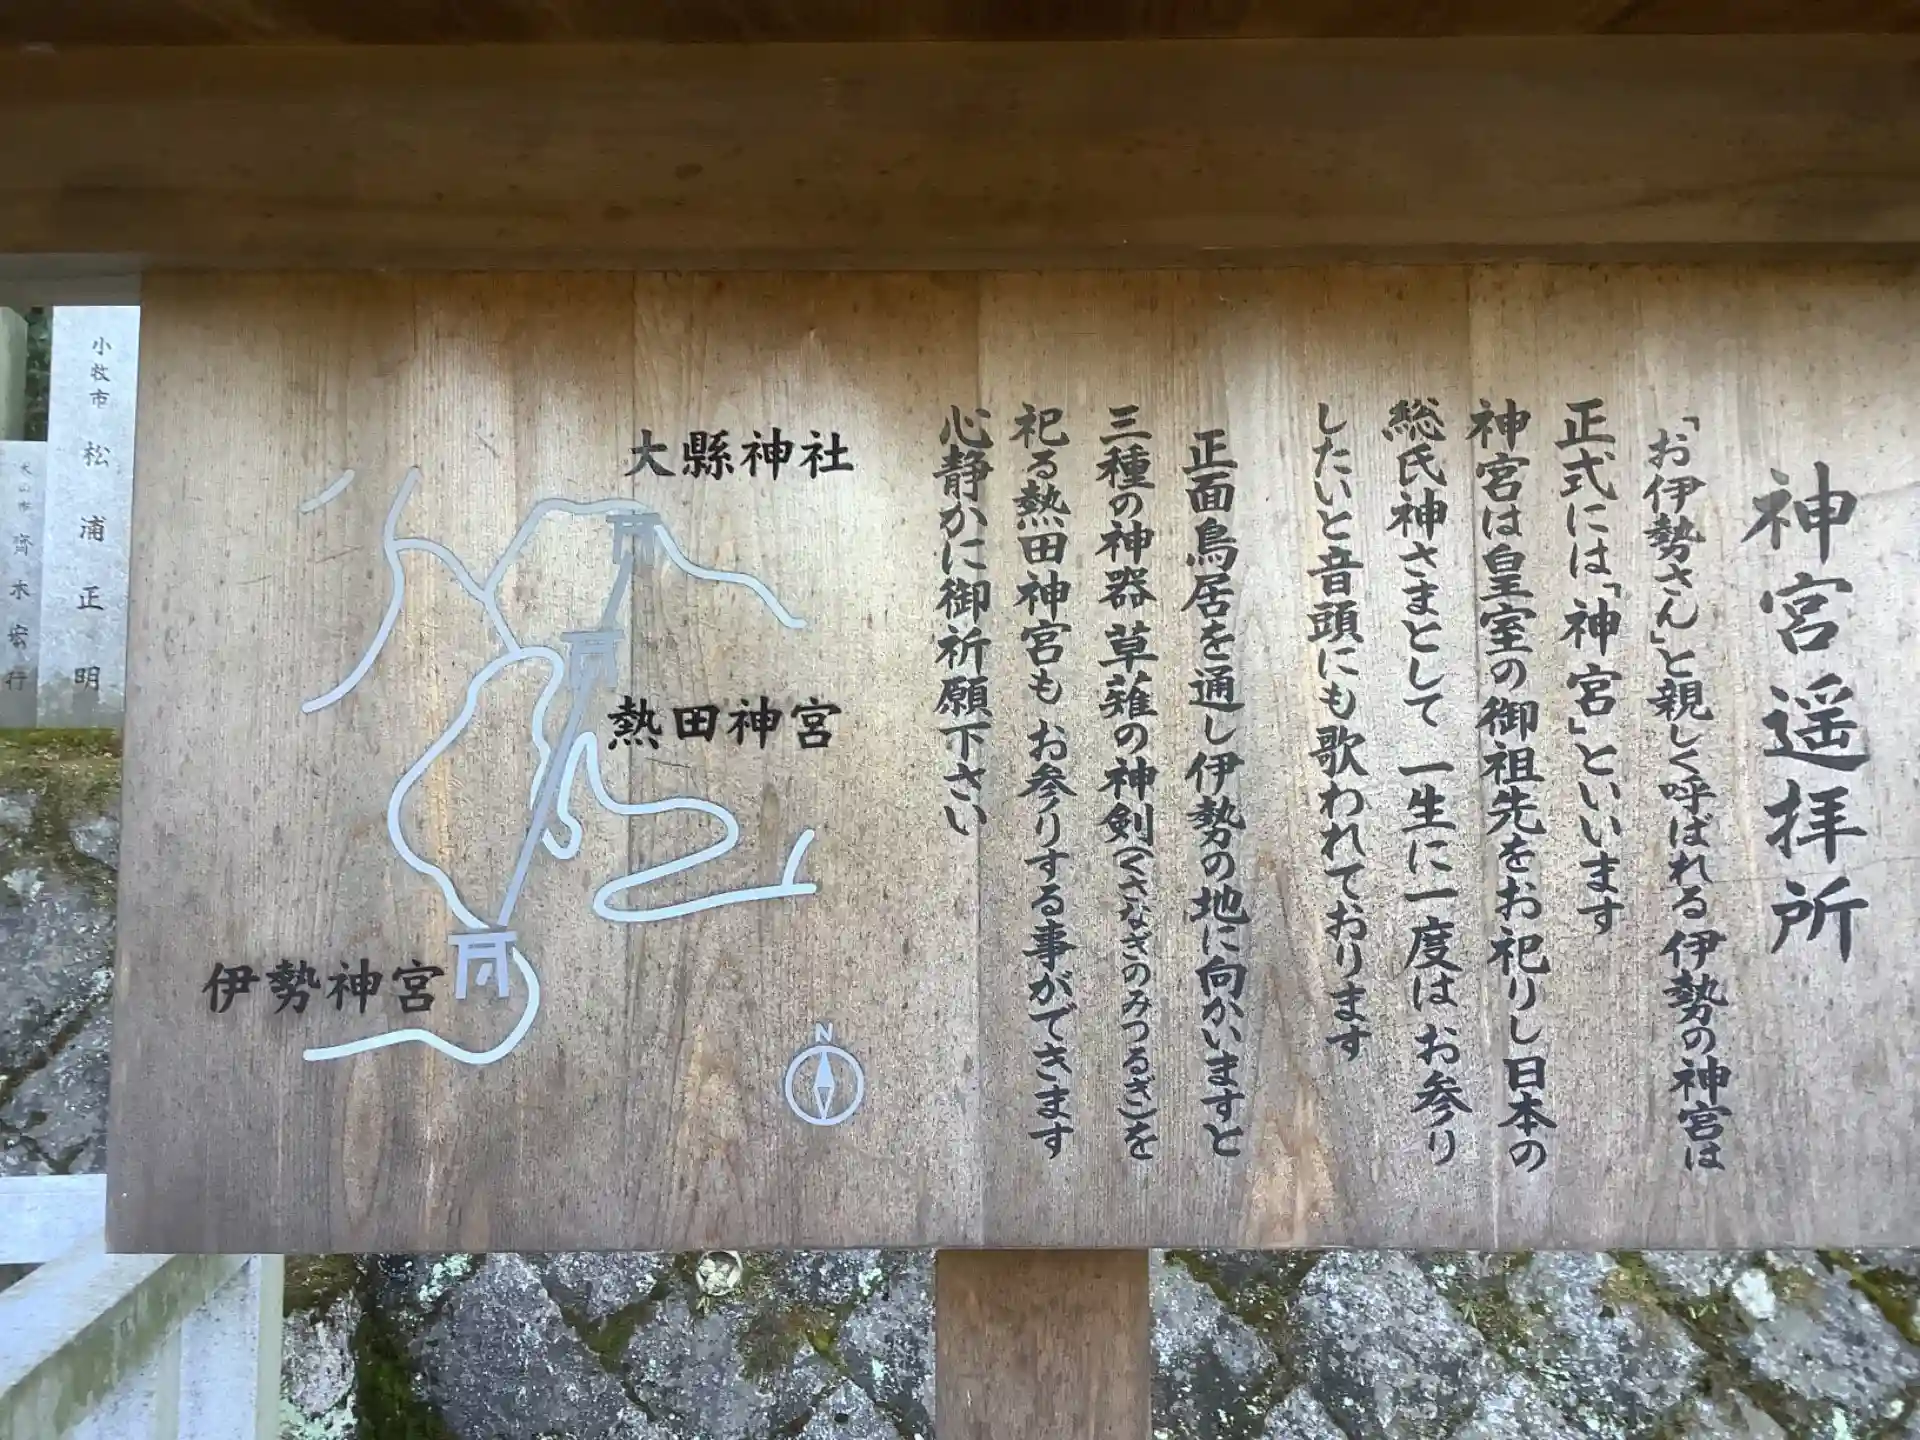 神宮遥拝所
「お伊勢さん」と親しく呼ばれる伊勢の神宮は
正式には「神宮」といいます
神宮は皇室の御祖先をお祀りし日本の
総氏神さまとして 一生に一度はお参り
したいと音頭にも歌われております
正面鳥居を通し伊勢の地に向かいますと
三種の神器 草薙の神剣(くさなぎのみつるぎ)を
祀る熱田神宮も お参りする事ができます
心静かに御祈願下さい
大縣神社
熱田神宮
伊勢神宮
N
小牧市 松浦正明
犬山市 齊木宏行